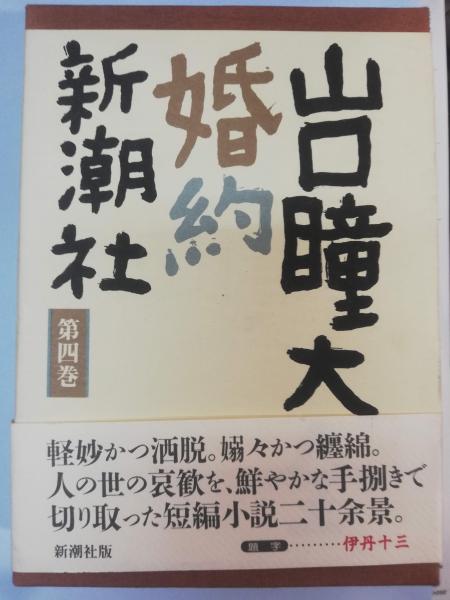 山口瞳大
婚約
新潮社
第四巻
軽妙かつ洒脱。嫋々かつ纏綿。
人の世の哀歓を、鮮やかな手捌きで
切り取った短編小説二十余景。
新潮社版
題字………伊丹十三